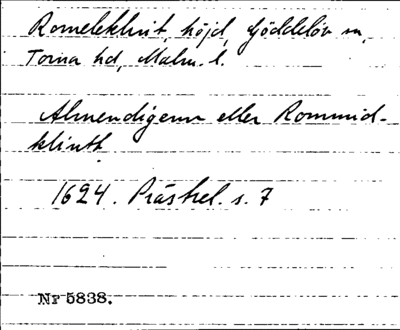 Romeleklint, höjd, Gödelöv sn,
Torna hd, Malm. l.
Almendigenn eller Rommid-
klinth
1624. Prästrel. s. 7
Nr 5838.